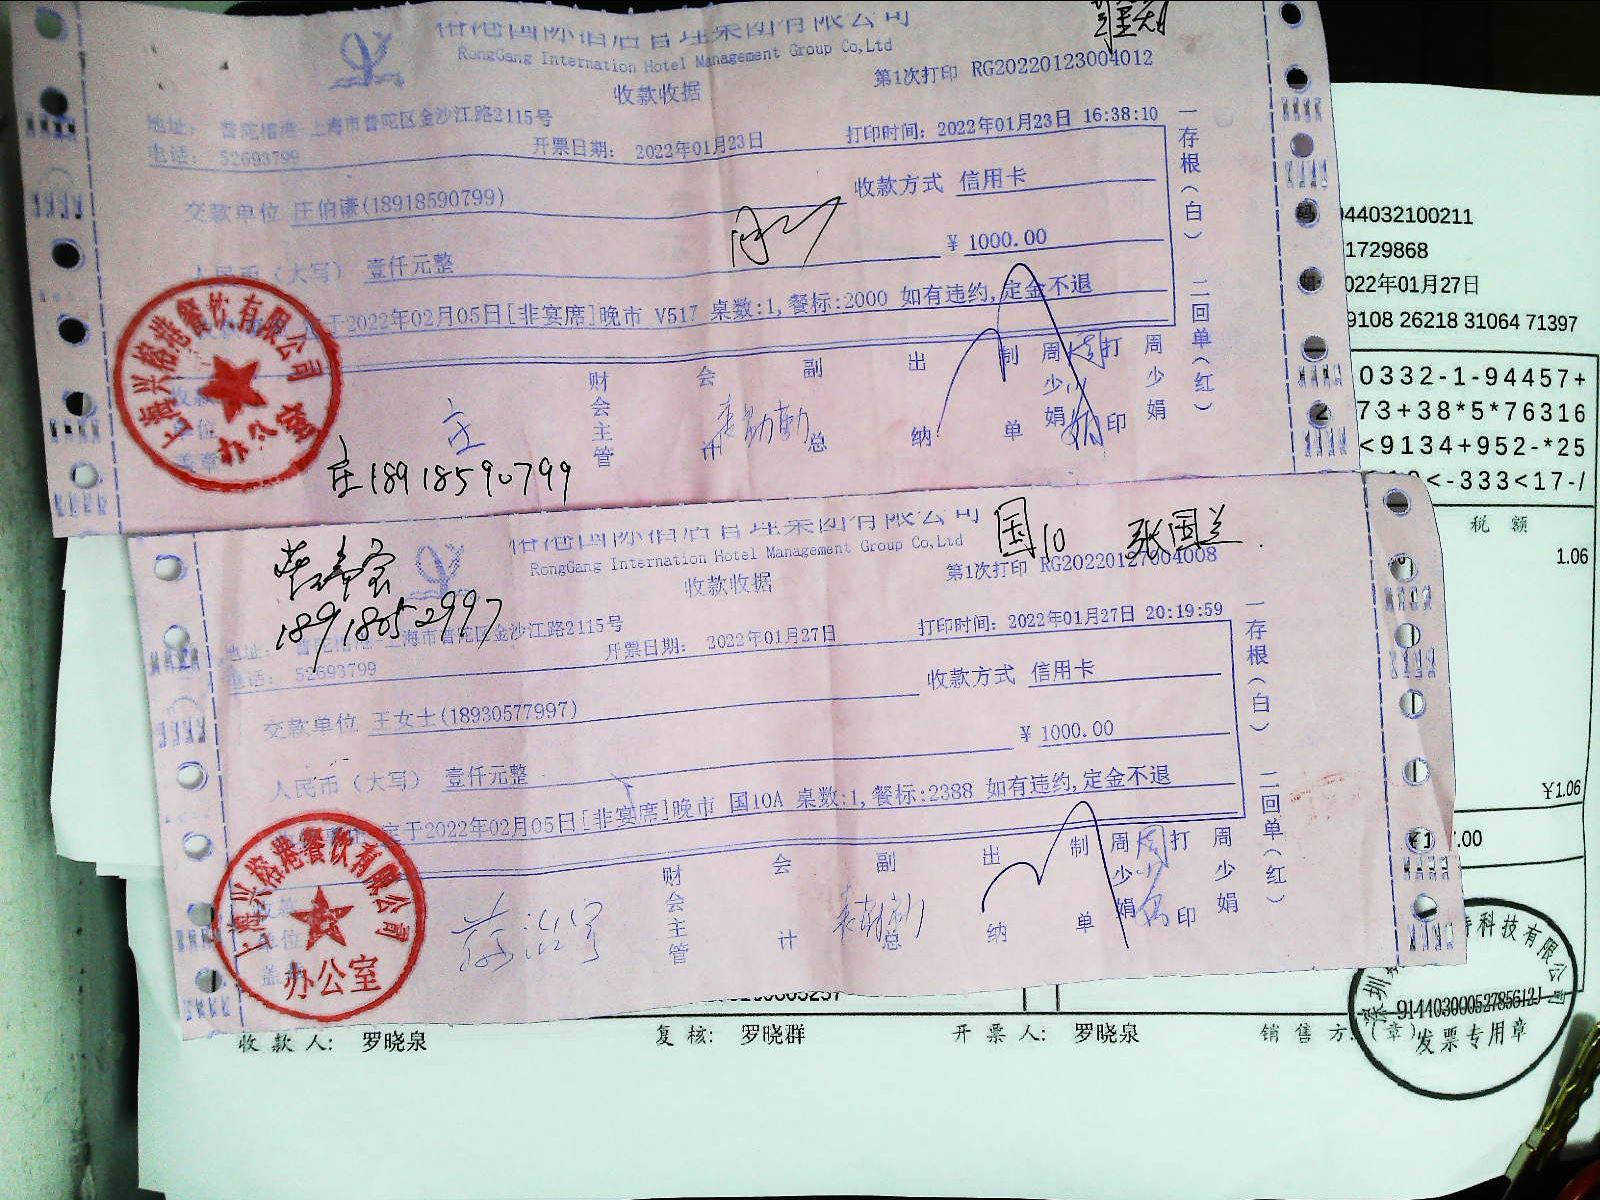 榕港国际酒店管理集团有限公司
RongGang Internation Hotel Management Group Co,Ltd
收款收据
第1次打印 RG20220123004012
地址: 普陀榕港-上海市普陀区金沙江路2115号
电话: 52693799
开票日期: 2022年01月23日
打印时间: 2022年01月23日 16:38:10
交款单位 庄伯谦(18918590799)
收款方式 信用卡
人民币(大写) 壹仟元整
¥ 1000.00
于2022年02月05日[非宴席]晚市 V517 桌数:1,餐标:2000 如有违约,定金不退
收款单位盖章
财会主管
会计
副总
出纳
制单
周少娟
打印
周少娟
一存根(白) 二回单(红)
上海兴榕港餐饮有限公司
办公室
庄
庄18918590799
榕港国际酒店管理集团有限公司
RongGang Internation Hotel Management Group Co,Ltd
收款收据
国10 张国兰.
第1次打印 RG20220127004008
18918052997
地址: 普陀榕港-上海市普陀区金沙江路2115号
电话: 52693799
开票日期: 2022年01月27日
打印时间: 2022年01月27日 20:19:59
交款单位 王女士(18930577997)
收款方式 信用卡
人民币(大写) 壹仟元整
¥ 1000.00
定于2022年02月05日[非宴席]晚市 国10A 桌数:1,餐标:2388 如有违约,定金不退
收款单位盖章
财会主管
会计
副总
出纳
制单
周少娟
打印
周少娟
一存根(白) 二回单(红)
上海兴榕港餐饮有限公司
办公室
044032100211
1729868
022年01月27日
9108 26218 31064 71397
0332-1-94457+
73+38*5*76316
<9134+952-*25
<-333<17-/
税 额
1.06
¥1.06
.00
收款人: 罗晓泉
复核: 罗晓群
开票人: 罗晓泉
销售方:(章)
科技有限公司
发票专用章